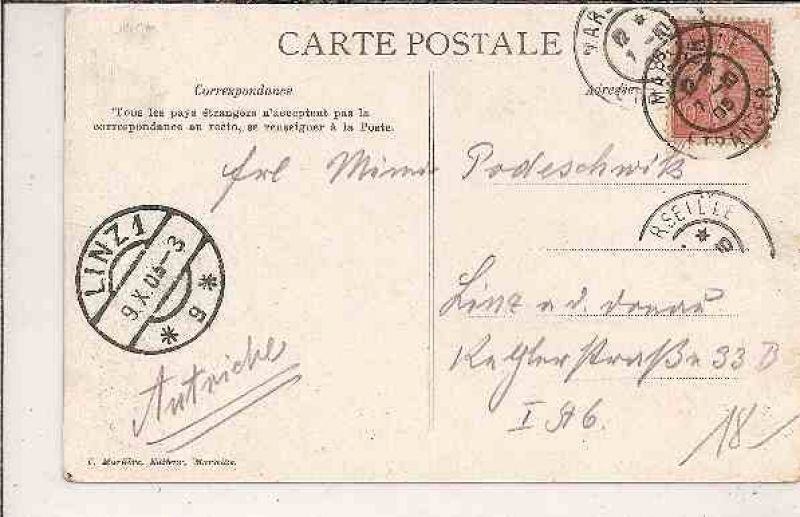 CARTE POSTALE
Correspondance
Adresse
Tous les pays étrangers n'acceptent pas la
correspondance au recto, se renseigner à la Poste.
MARSEILLE
ETRANGER
frl Mimi Podeschwik
RSEILLE
LINZ 1
9.X.05-3
* 6 *
Linz a. d. Donau
Keplerstraße 33 B
I St 6.
Autriche
18